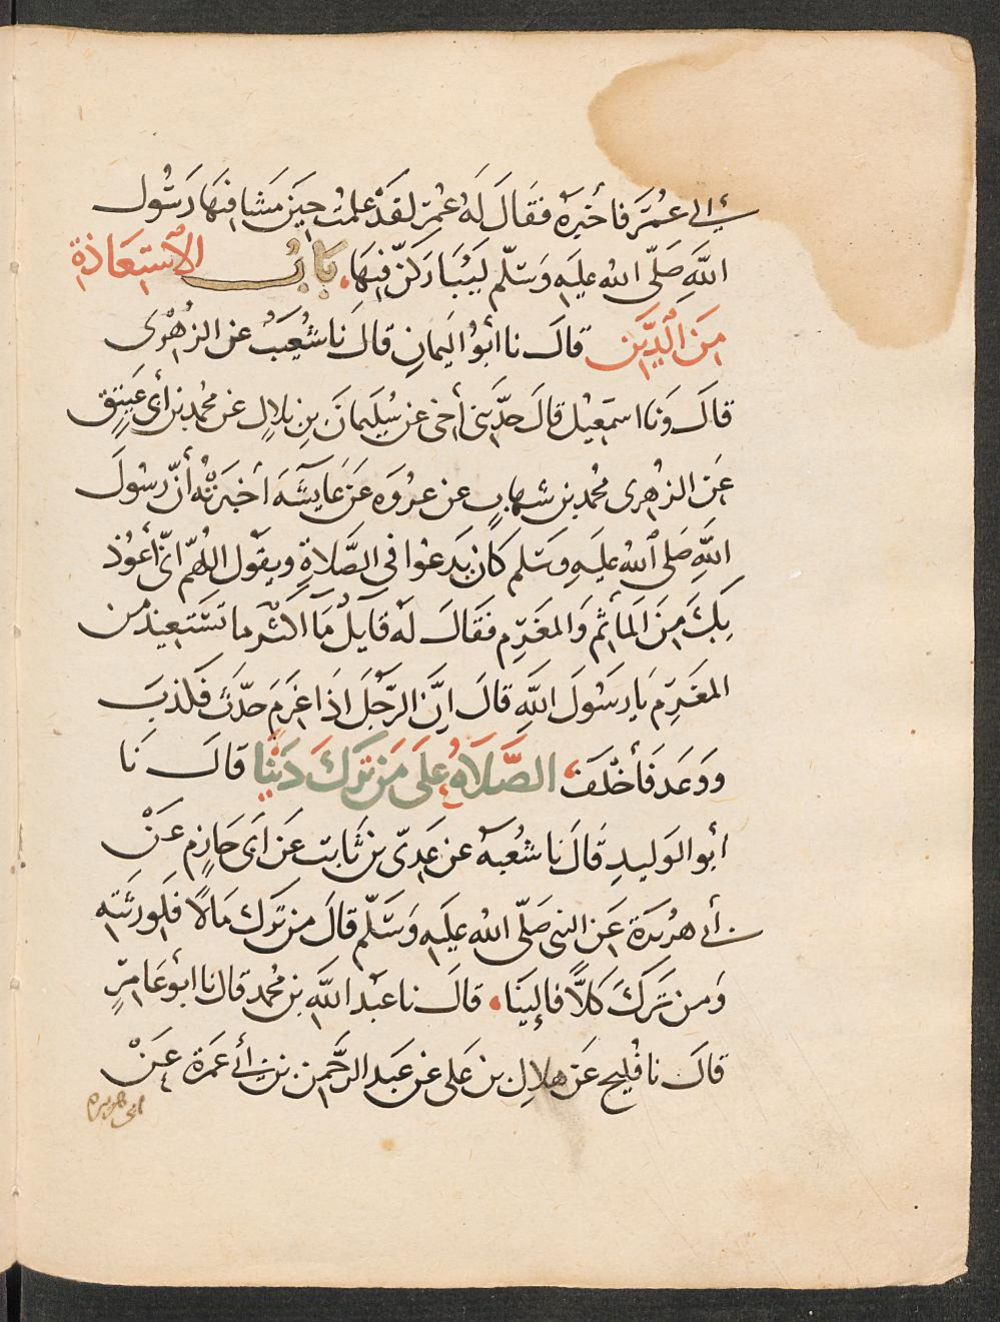 إلى عُمَرَ فأخبرهُ فقَالَ لَهُ عُمر لقَدْ علمتُ حِينَ مَشَا فيهَا رَسُول
اللَّهِ صَلَّى الله عليَهِ وَسَلّم لَيُبَارَكَنَّ فِيهَا. بَابُ الاسْتِعَاذَة
مِنَ الدَّيْن قالَ نا أبوُ اليمانِ قالَ نا شُعَيبُ عن الزهْرى
قالَ ونا اسمعِيل قالَ حدَّثنى أخى عن سُليمانَ بنِ بلالٍ عن محُمد بن أبى عَتِيق
عَن الزهرى محُمد بن شهابٍ عن عروَه عَن عَايشَه أخبرَتْهُ أنّ رسُولَ
اللَّهِ صَلى اللهُ عليَهِ وسَلم كانَ يَدعوُا فى الصَّلاةِ ويقول اللهُمّ انّى أعوُذ
بكَ مِنَ المأثمِ وَالمغَرمِ فقَالَ لهُ قايلٌ مَآ اكثرَ ما تَستعِيذ من
المغَرمِ يا رسَوُلَ اللَّهِ قالَ إنَّ الرَّجُلَ اذَا غَرِمَ حَدّثَ فَكذبَ
وَوعَد فَأخْلَفَ الصَّلاَةُ علَى مَن تَركَ دَيْنًا قالَ نَا
أبو الوَليدِ قَالَ نَا شُعْبه عن عَدِىّ بن ثَابت عَن أبى حَازِم عنْ
أبى هُرَيَرَة عَن النبى صَلّى اللهُ علَيهِ وَسَلّم قالَ من تَركَ مَالاً فَلِورثتهِ
وَمن تَركَ كلاًّ فإلينَا. قالَ نا عبْد اللَّهِ بن محُمد قالَ نا أبوُ عَامرٍ
قالَ نا فُليح عَن هلالِ بن عَلى عن عبَد الرحَّمن بن أبى عَمرَة عَنْ
ابى هريره